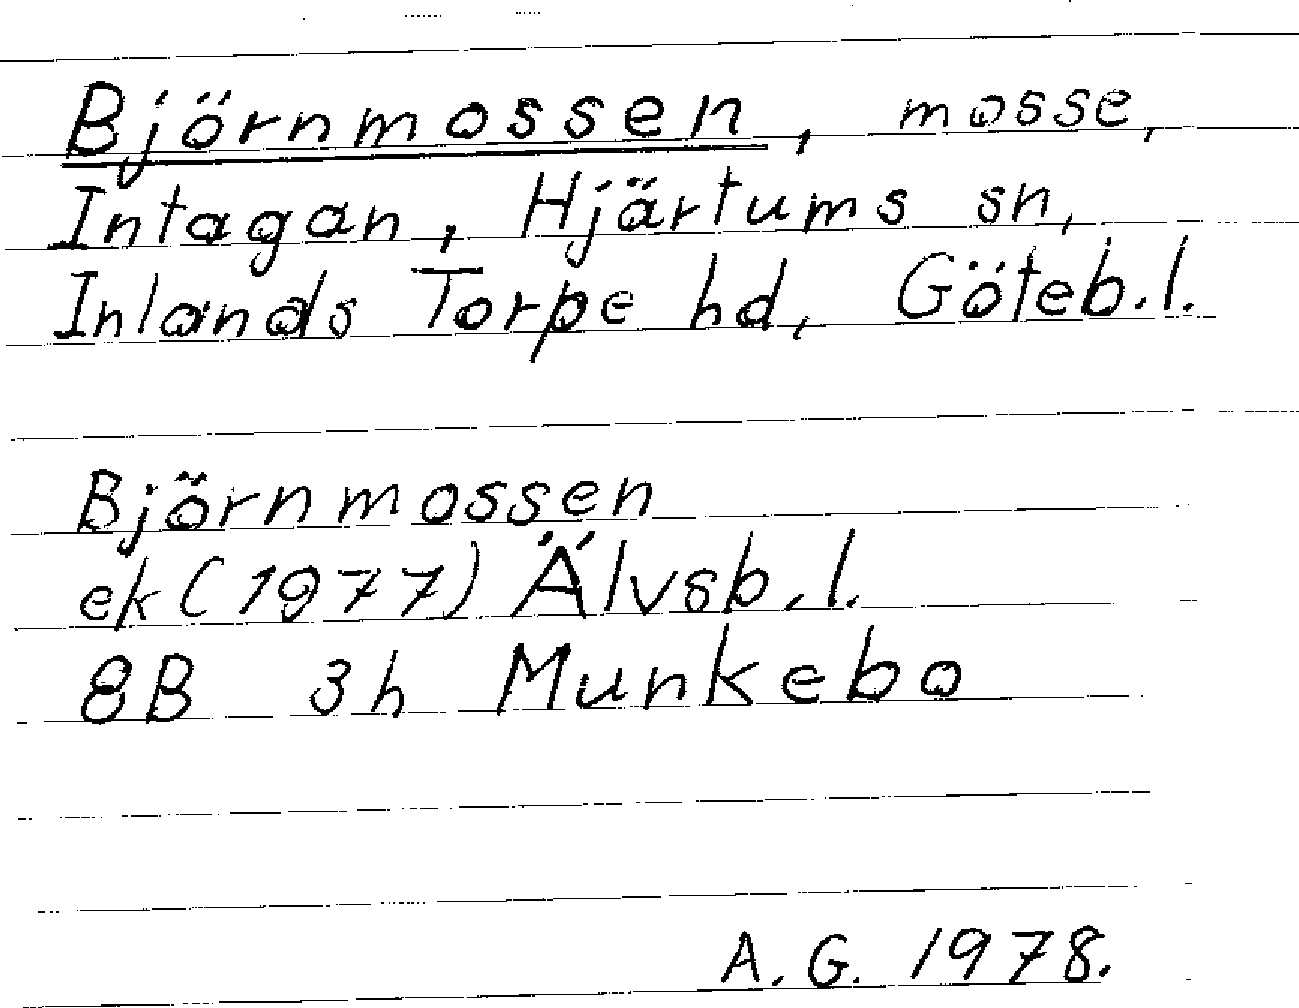 Björnmossen, mosse,
Intagan, Hjärtums sn,
Inlands Torpe hd, Göteb.l.
Björnmossen
ek (1977) Älvsb.l.
8B 3h Munkebo
A.G. 1978.